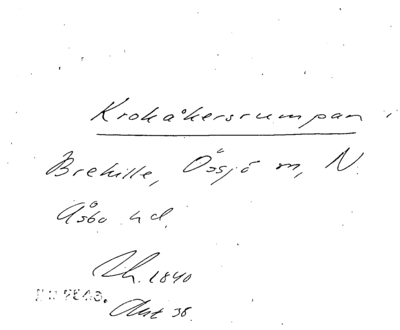 Krokåkersrumpan
Brehille, Össjö m, N.
Åsbo hd.
1840
Akt 38.